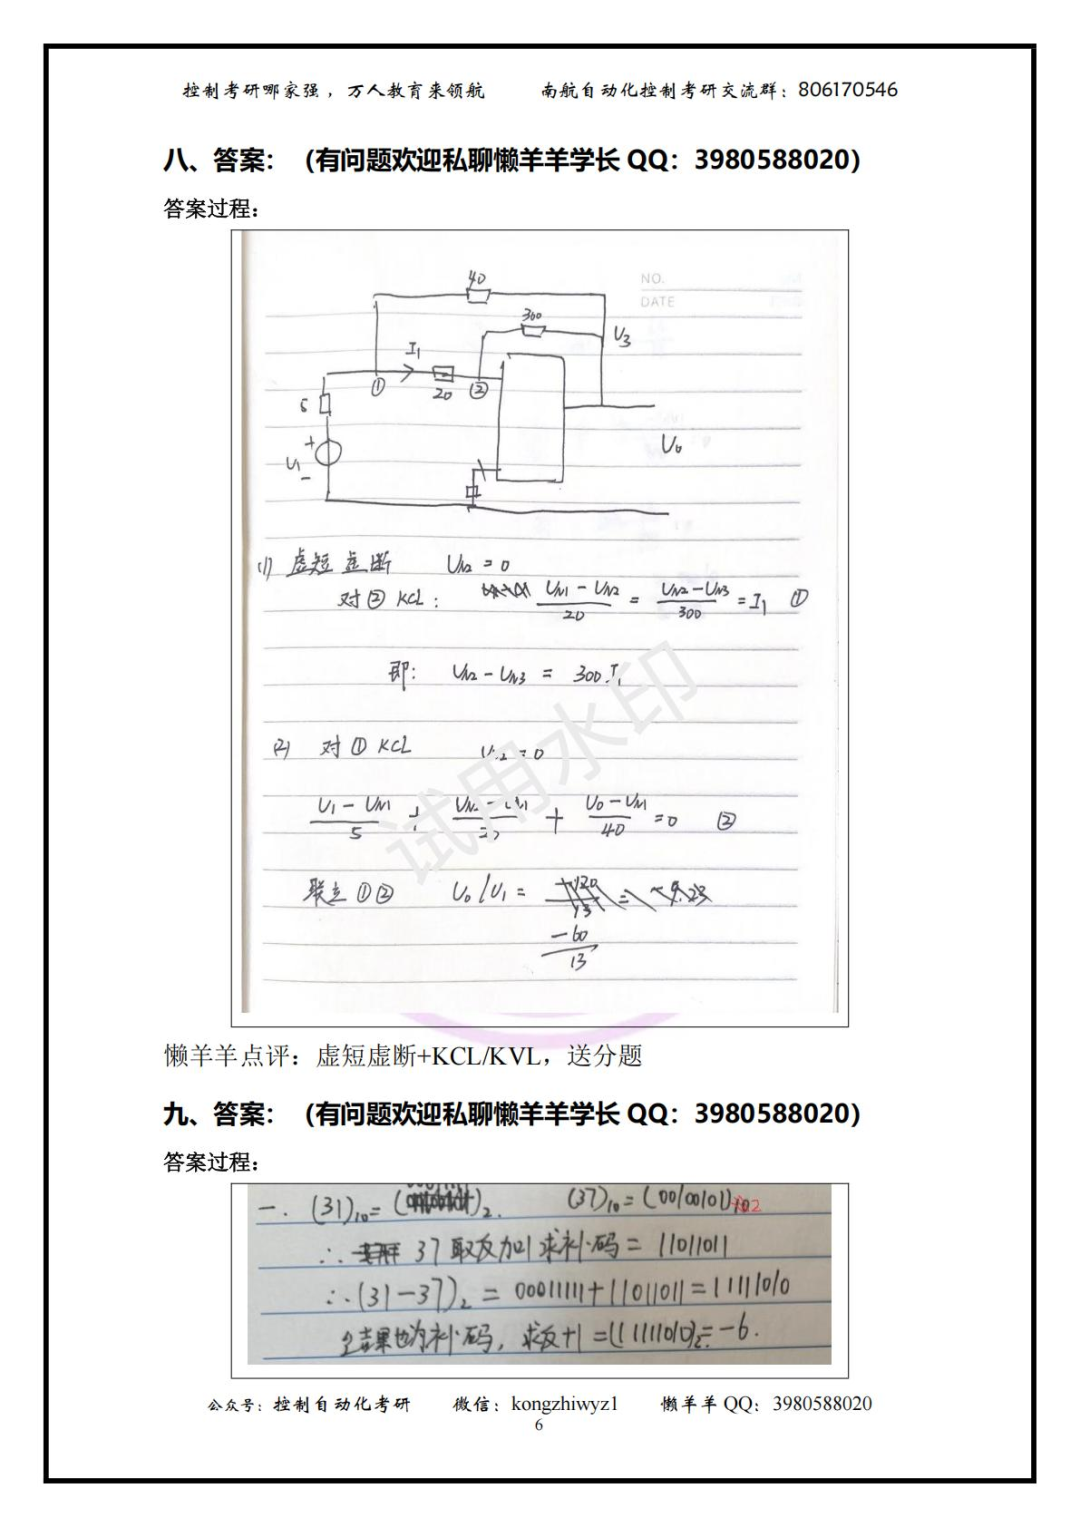 控制考研哪家强，万人教育来领航 南航自动化控制考研交流群：806170546
八、答案：（有问题欢迎私聊懒羊羊学长 QQ：3980588020）
答案过程：
NO.
DATE
40
300
U3
I1
① 20 ②
5
+
U1
-
U0
(1) 虚短虚断 UN2 = 0
对②KCL： (UN1 - UN2)/20 = (UN2 - UN3)/300 = I1 ①
即： UN2 - UN3 = 300 I1
(2) 对①KCL UN2 = 0
(U1 - UN1)/5 + (UN2 - UN1)/20 + (U0 - UN1)/40 = 0 ②
联立①② U0/U1 =
-60/13
试用水印
懒羊羊点评：虚短虚断+KCL/KVL，送分题
九、答案：（有问题欢迎私聊懒羊羊学长 QQ：3980588020）
答案过程：
一. (31)10 = ( )2. (37)10 = (00100101)2
∴ 37取反加1求补码 = 11011011
∴ (31-37)2 = 00011111+11011011 = 11111010
结果也为补码，求反+1 = (11111010)2 = -6.
公众号：控制自动化考研 微信：kongzhiwyz1 懒羊羊 QQ：3980588020
6